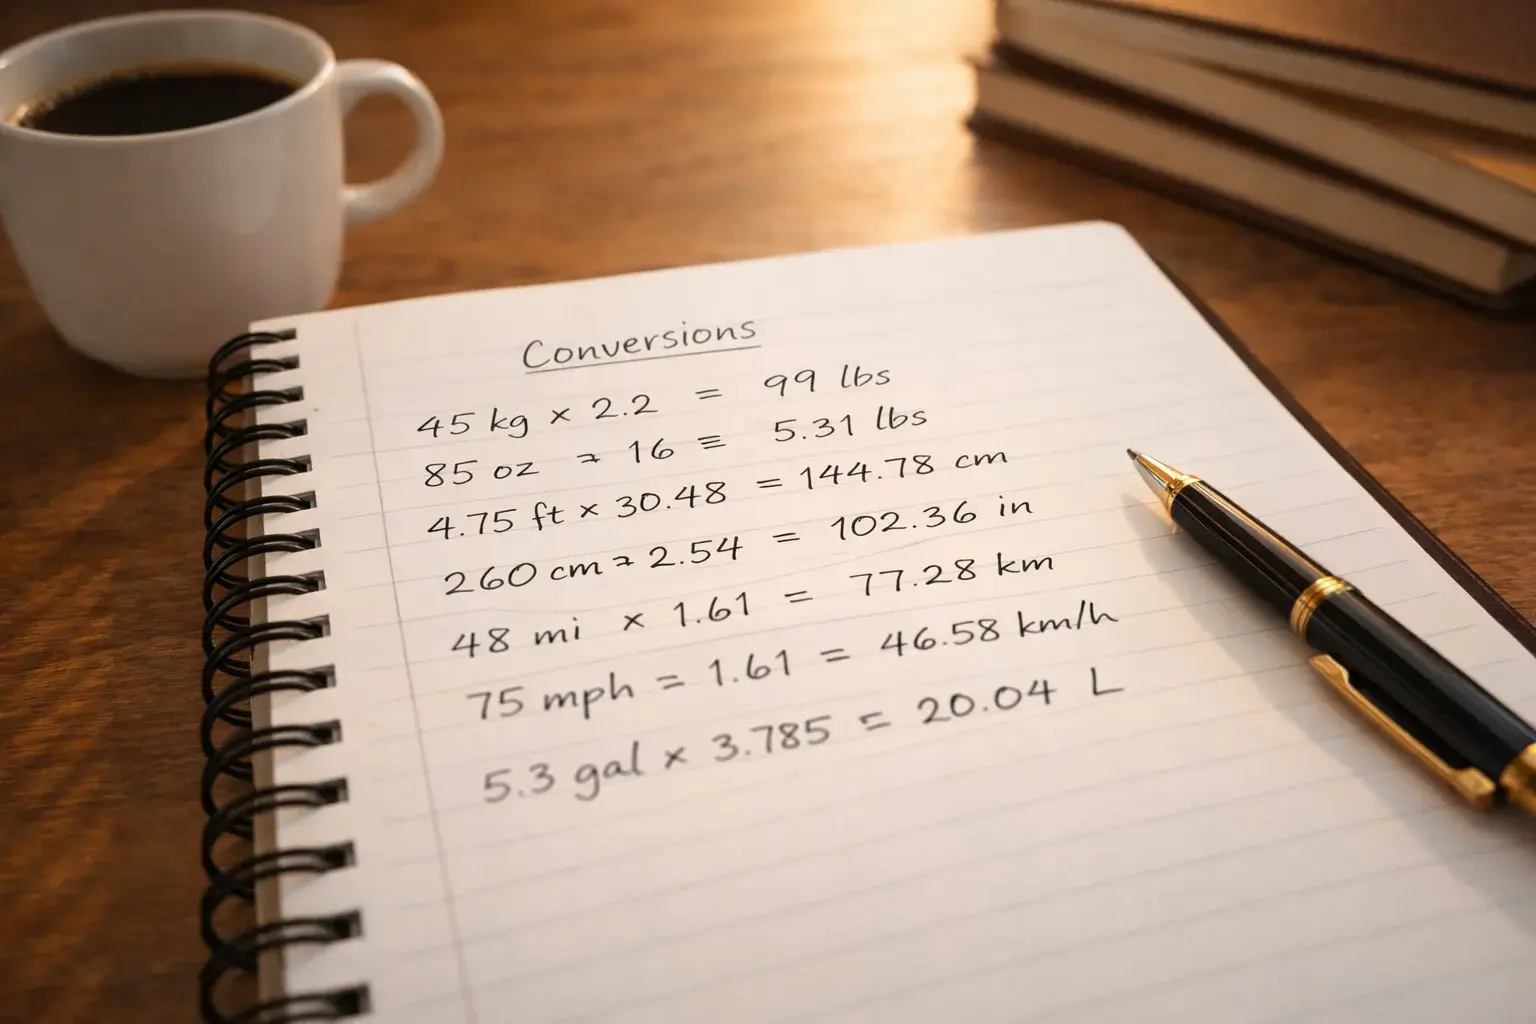 Conversions
45 kg × 2.2 = 99 lbs
85 oz ÷ 16 = 5.31 lbs
4.75 ft × 30.48 = 144.78 cm
260 cm ÷ 2.54 = 102.36 in
48 mi × 1.61 = 77.28 km
75 mph = 1.61 = 46.58 km/h
5.3 gal × 3.785 = 20.04 L